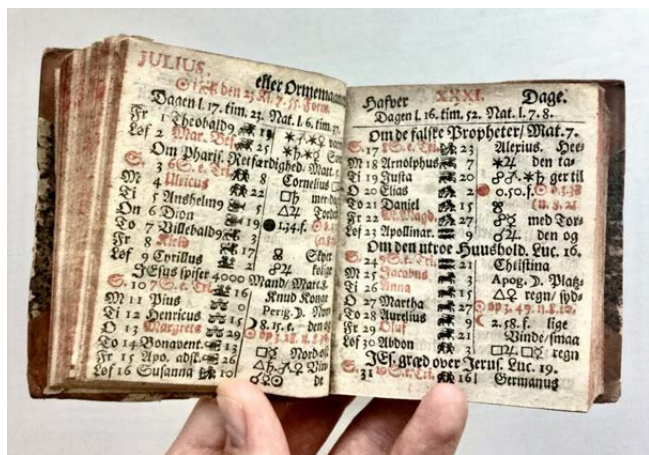 JULIUS. eller Ormemaaned
den 23 Kl. 7.
Dagen l. 17. tim. 23. Nat. l. 6. tim.
Fr 1 Theobald9 19
Løf 2 Mar. Bes. 25
Om Pharis. Retfærdighed. Matt.
S. 3 6 S. e. Tri. 8 Cornelius
M 4 Ulricus 22
Ti 5 Anshelm9 5
On 6 Dion 19 1.34.f.
To 7 Villebald9 3
Fr 8 Kield 17
Løf 9 Cyrillus 2
JEsus spiser 4000 Mand/ Marc. 8.
S. 10 7 S. e. Tri. 16 Knud Konge
M 11 Pius 0 Perig. D.
Ti 12 Henricus 15 8. 15. e. den
O 13 Margreta 29
To 14 Bonavent. 13 Nordost
Fr 15 Apo. adsk. 26
Løf 16 Susanna 10 de
Hafver XXXI. Dage.
Dagen l. 16. tim. 52. Nat. l. 7. 8.
Om de falske Propheter/ Mat. 7.
S. 17 8 S. e. Tri. 23 Alexius.
M 18 Arnolphus 7 den ta-
Ti 19 Justa 20 ger til
O 20 Elias 2 0.50.f.
To 21 Daniel 15
Fr 22 M. Magd. 27 med Tor-
Løf 23 Apollinar. 9 den og
Om den utroe Huushold. Luc. 16.
S. 24 9 S. e. Tri. Christina
M 25 Jacobus 3 Apog. D. Plads-
Ti 26 Anna 15 regn/ syd-
O 27 Martha 27
To 28 Aurelius 9 2. 58. f. lige
Fr 29 Oluf 21 Vinde/ smaa
Løf 30 Abdon 3 regn
JEs. græd over Jerus. Luc. 19.
S. 31 10 S. e. Tri. 16 Germanus